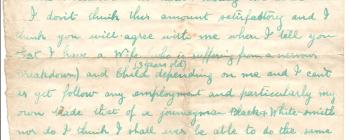 I don't think this amount satisfactory and I
think you will agree with me when I tell you
that I have a Wife who is suffering from a nervous
(13 years old)
Breakdown) and Child depending on me and I can't
as yet follow any employment and particularly my
own trade that of a journeyman Black & White smith
nor do I think I shall ever be able to do the same